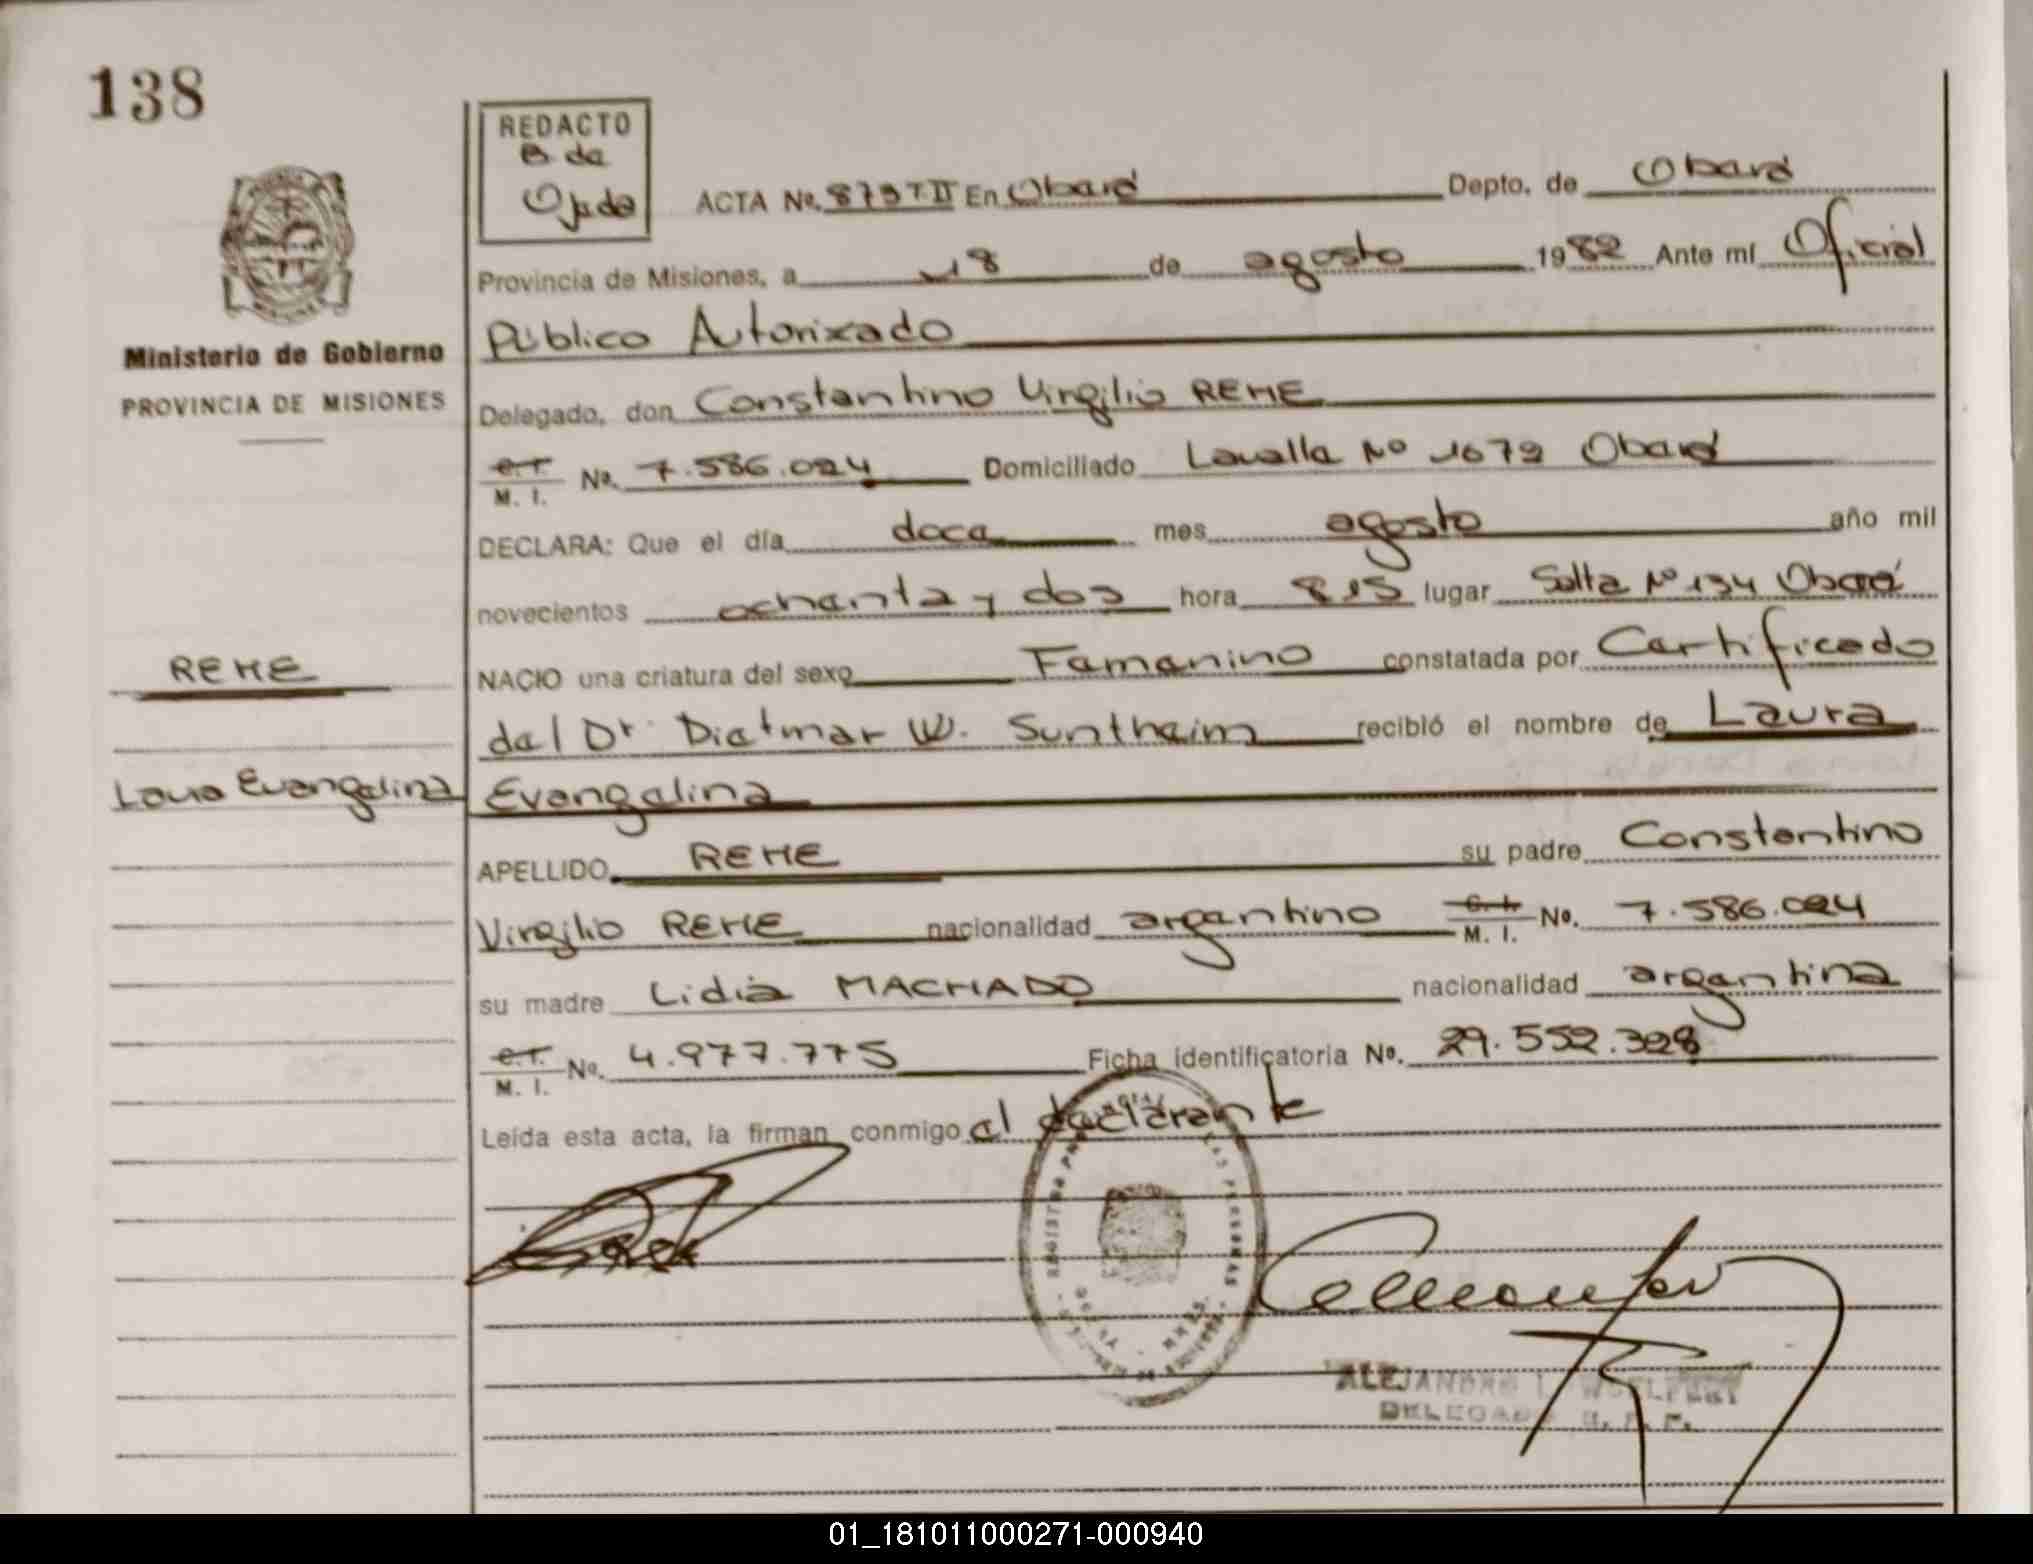 138
REDACTO
B. de
Ojeda
ACTA No. 879 T.II En Oberá Depto. de Oberá
Provincia de Misiones, a 18 de agosto 1982 Ante mí Oficial
Ministerio de Gobierno
PROVINCIA DE MISIONES
Público Autorizado
Delegado, don Constantino Virgilio REHE
C.I.
M. I. No. 7.586.024 Domiciliado Lavalle No 1679 Oberá
DECLARA: Que el día doce mes agosto año mil
novecientos ochenta y dos hora 8,15 lugar Salta No 134 Oberá
REHE
NACIO una criatura del sexo Femenino constatada por Certificado
del Dr. Dietmar W. Suntheim recibió el nombre de Laura
Laura Evangelina
Evangelina
APELLIDO REHE su padre Constantino
Virgilio REHE nacionalidad argentino C. I.
M. I. No. 7.586.024
su madre Lidia MACHADO nacionalidad argentina
C.I.
M. I. No. 4.977.775 Ficha identificatoria No. 29.552.328
Leída esta acta, la firman conmigo el declarante
ALEJANDRO
DELEGADO R. P. P.
01_181011000271-000940